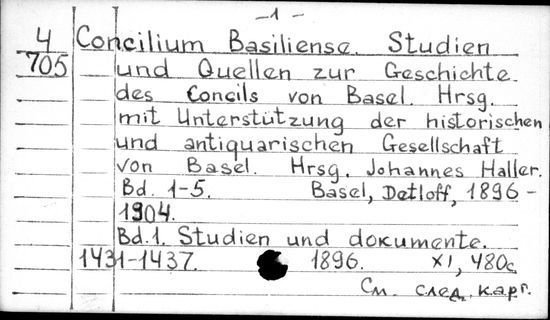 -1-
4 Concilium Basiliense. Studien
705 und Quellen zur Geschichte
des Concils von Basel. Hrsg.
mit Unterstützung der historischen
und antiquarischen Gesellschaft
von Basel. Hrsg. Johannes Haller.
Bd. 1-5. Basel, Detloff, 1896-
1904.
Bd.1. Studien und dokumente.
1431-1437. 1896. XI, 480c.
См. след. карт.